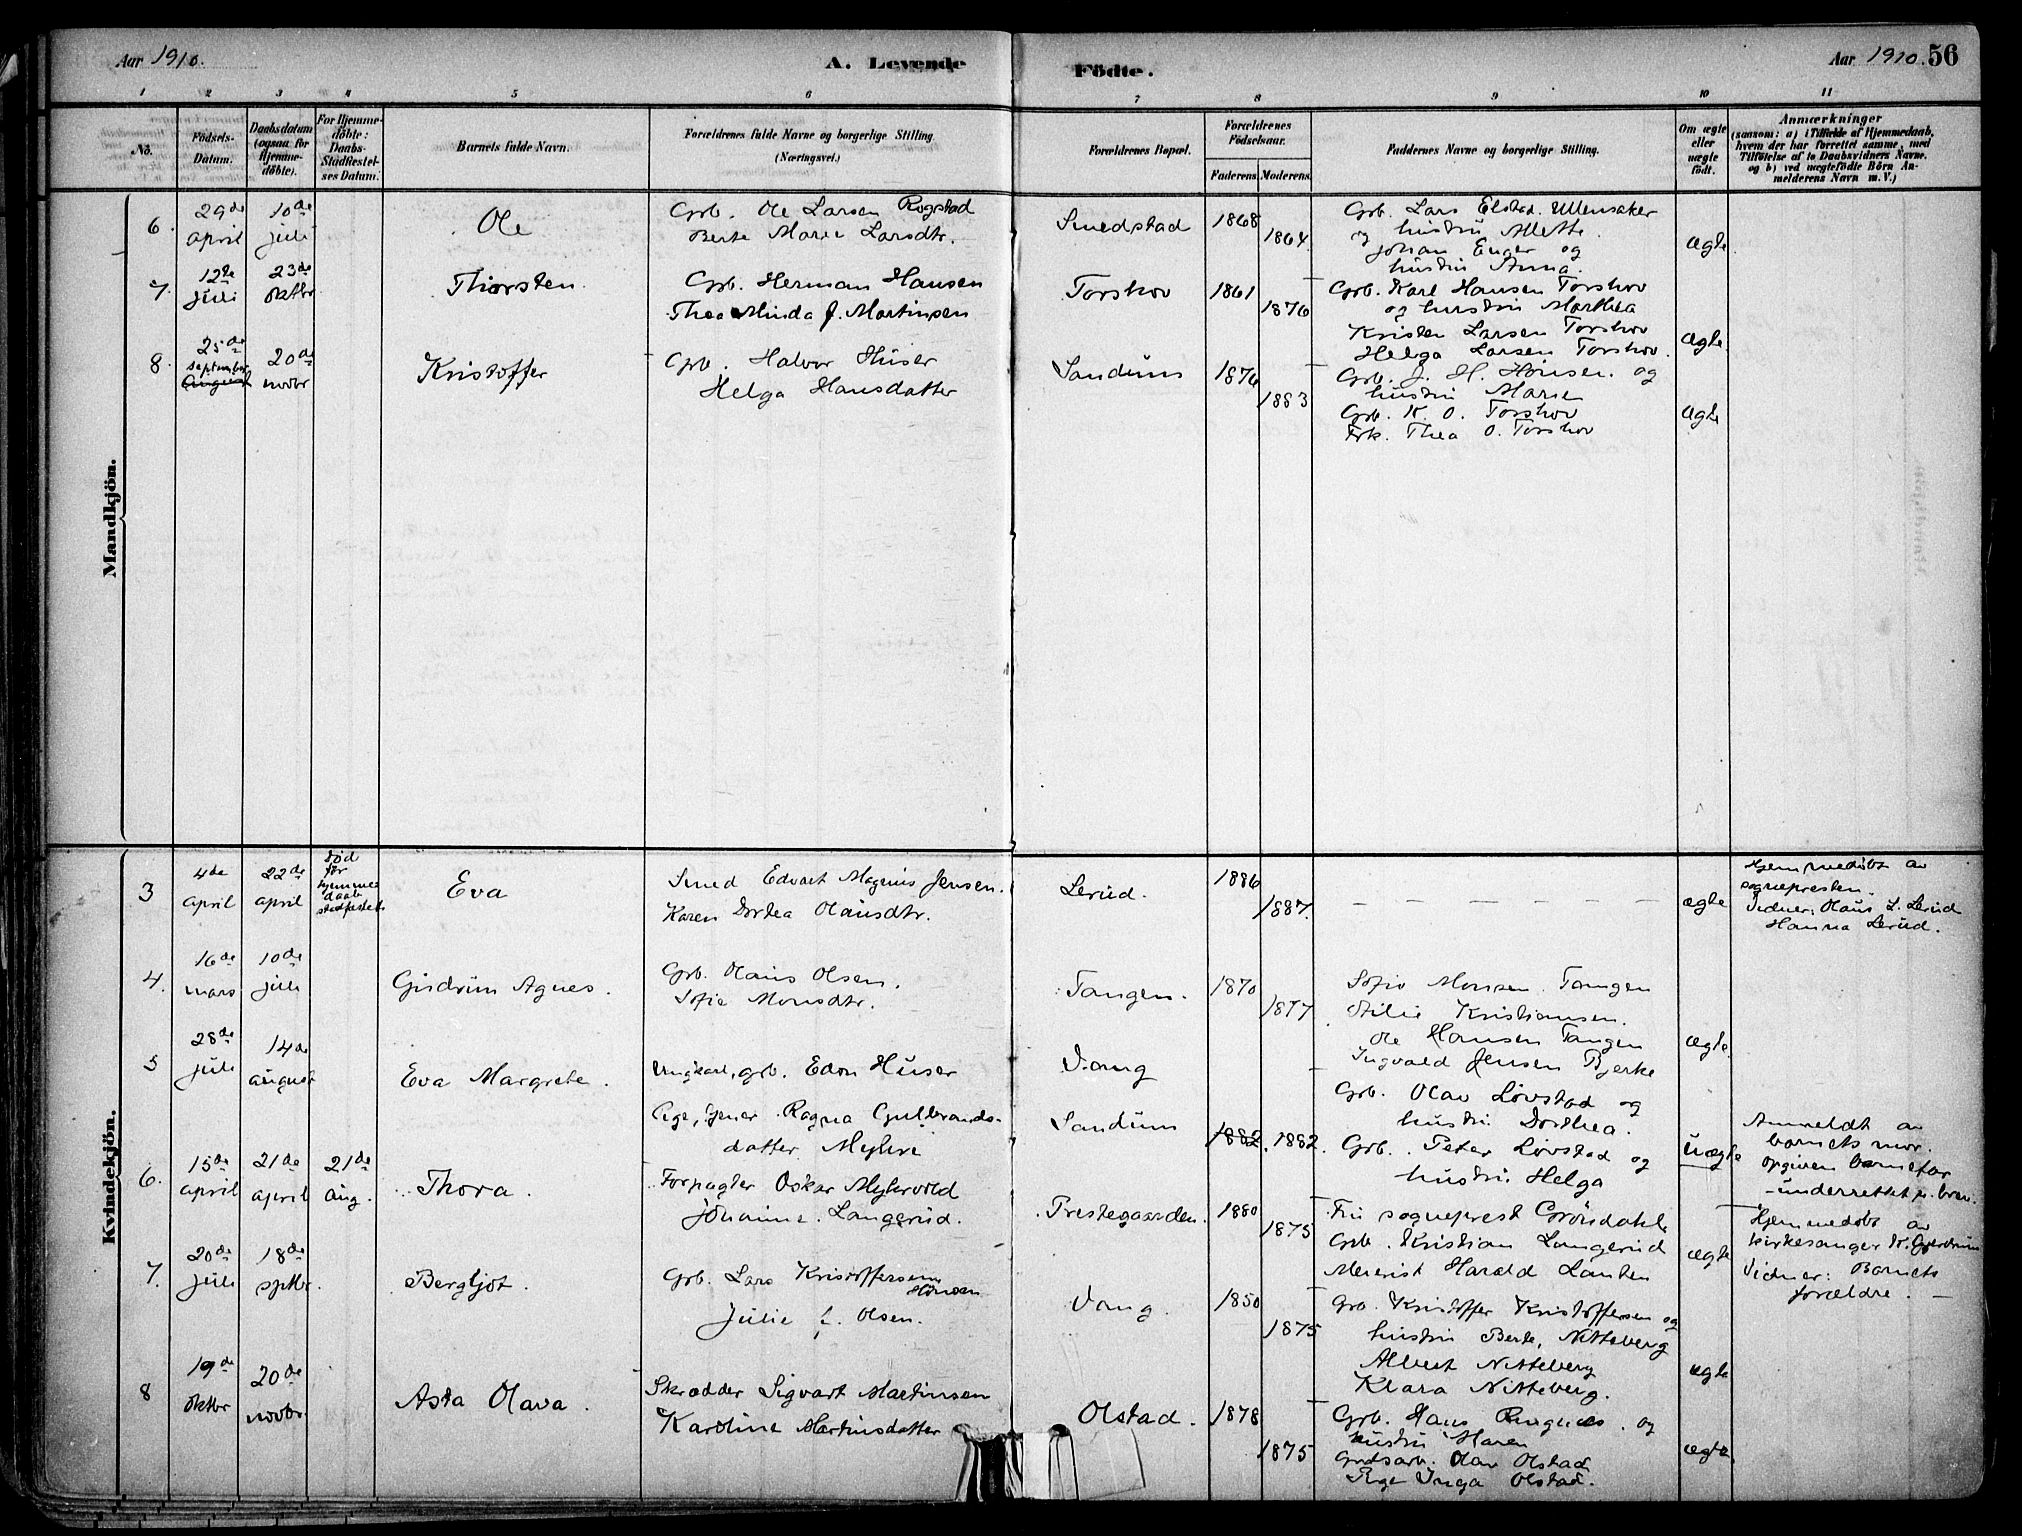 Aar 1910.
A. Levende
Födte.
Aar 1910. 56
1 2 3 4 5 6 7 8 9 10 11
No.
Födsels-
Datum.
Daabsdatum
(ogsaa for
Hjemme-
döbte).
For Hjemme-
döbte:
Daabs-
Stadfæstel-
ses Datum.
Barnets fulde Navn.
Forældrenes fulde Navne og borgerlige Stilling
(Næringsvei.)
Forældrenes Bopæl.
Forældrenes
Födselsaar.
Faderens Moderens
Faddernes Navne og borgerlige Stilling.
Om ægte
eller
uægte
født.
Anmærkninger
(saasom: a) i Tilfælde af Hjemmedaab,
hvem der har forrettet samme, med
Tilföielse af to Daabsvidners Navne,
og b) ved uægtefödte Börn An-
melderens Navn m. V.)
Mandkjön.
6. 29de april
10de juli
Ole
Grb. Ole Larsen Rogstad
Berte Marie Larsdtr.
Smedstad
1868
1864
Grb. Lars Elstad Ullensaker
og hustru Allette.
Johan Enger og
hustru Anna.
ægte
7. 12te juli
23de oktbr
Thorsten
Grb. Herman Hansen
Thea Minda f. Martinsen
Torshov
1861
1876
Grb. Karl Hansen Torshov
og hustru Marthea
Kristen Larsen Torshov
Helga Larsen Torshov.
ægte
8. 25de september
20de novbr
Kristoffer
Grb. Halvor Huser
Helga Hansdatter
Sandum
1876
1883
Grb. J. H. Hønsen og
hustru Maren
Grb. K. O. Torshov
Frk. Thea O. Torshov
ægte
Kvindekjön.
3 4de april
22de april
død
før
hjemme
daab
stadfæstet
Eva
Smed Edvart Magnus Jensen.
Karen Dortea Olausdtr.
Lerud.
1886
1887.
ægte
Hjemmedøbt av
sognepresten.
Vidner: Olaus L. Lerud
Hanna Lerud.
4. 16de mars
10de juli
Gudrun Agnes.
Grb. Olaus Olsen.
Sofie Monsdtr.
Tangen.
1870
1877
Sofie Monsen Tangen
Stilie Kristiansen.
Ole Hansen Tangen
Ingvald Jensen Bjerke
ægte
5 28de juli
14de august
Eva Margrete.
Ungkarl, grb. Edon Huser
Pige, tjener Ragna Gulbrands-
datter Myhre
Vang
Sandum
1882
1882
Grb. Olav Løvstad og
hustru Dorthea.
Grb. Peter Løvstad og
hustru Helga
uægte
Anmeldt av
barnets mor.
opgiven barnefar
underrettet pr. brev.
6. 15de april
21de april
21de aug.
Thora.
Forpagter Oskar Myhrvold
Johanne Langerud.
Prestegaarden.
1880
1875
Fru sogneprest Grøndahl
Grb. Kristian Langerud
Meierist Harald Lunden
ægte
Hjemmedøbt av
kirkesanger K. Gjerdrum
Vidner: Barnets
forældre.
7. 20de juli
18de septbr.
Bergljot.
Grb. Lars Kristoffersen
Hønsen
Julie f. Olsen.
Vang.
1850
1875
Grb. Kristoffer Kristoffersen og
hustru Berte, Nitteberg
Albert Nitteberg
Klara Nitteberg.
ægte
8 19de oktbr
20de novbr.
Asta Olava.
Skrædder Sigvart Martinsen
Karoline Martinsdatter
Olstad.
1878
1875
Grb. Hans Ringnes og
hustru Maren
Gaardsarb. Olav Olstad
Pige Inga Olstad.
ægte